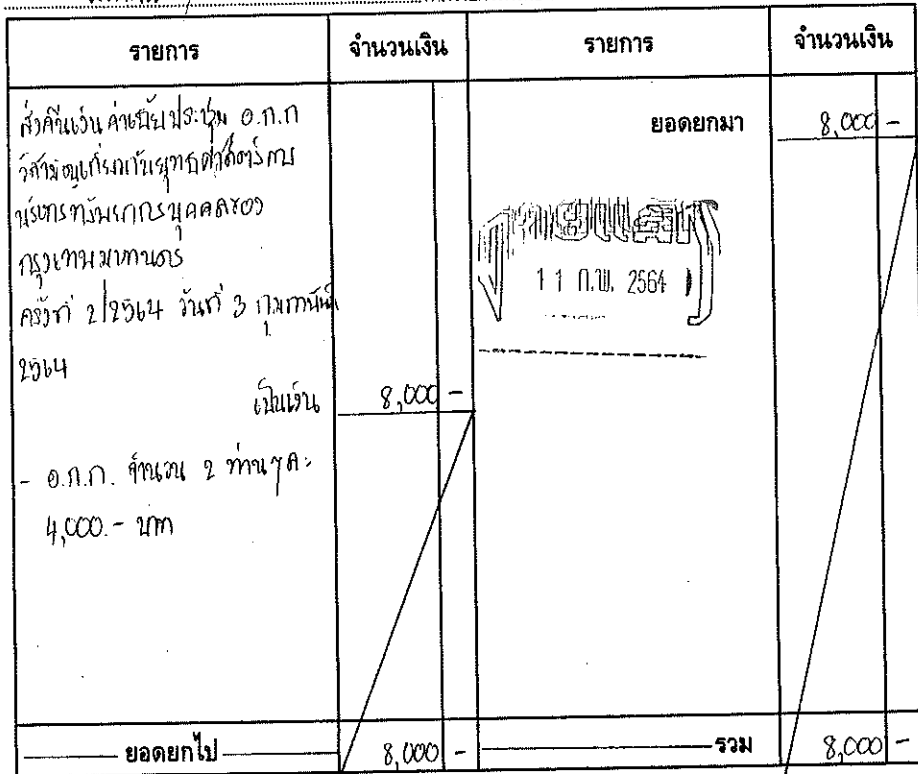 รายการ
จำนวนเงิน
รายการ
จำนวนเงิน
ส่งคืนเงินค่าเบี้ยประชุม อ.ก.ก
วิสามัญเกี่ยวกับยุทธศาสตร์การ
บริหารทรัพยากรบุคคลของ
กรุงเทพมหานคร
ครั้งที่ 2/2564 วันที่ 3 กุมภาพันธ์
2564
เป็นเงิน 8,000 -
- อ.ก.ก. จำนวน 2 ท่านๆละ
4,000.- บาท
ยอดยกไป 8,000 -
ยอดยกมา 8,000 -
11 ก.พ. 2564
รวม 8,000 -